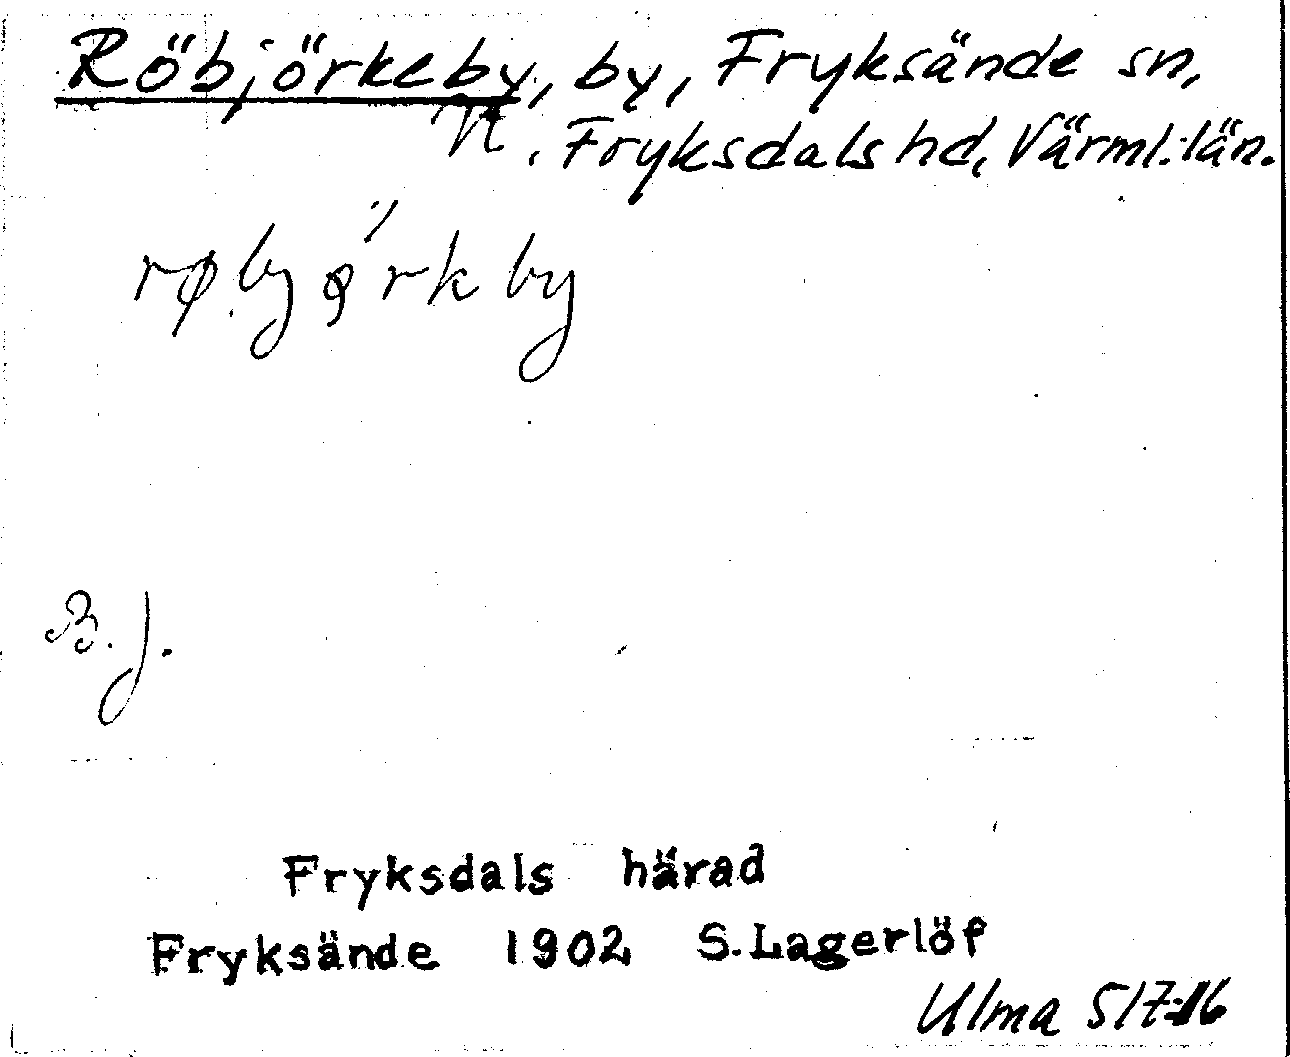 Röbjörkeby, by, Fryksände sn,
N. Fryksdals hd, Värml. län.
røbyø̀rkby
B. J.
Fryksdals härad
Fryksände 1902 S. Lagerlöf
Ulma 517:16